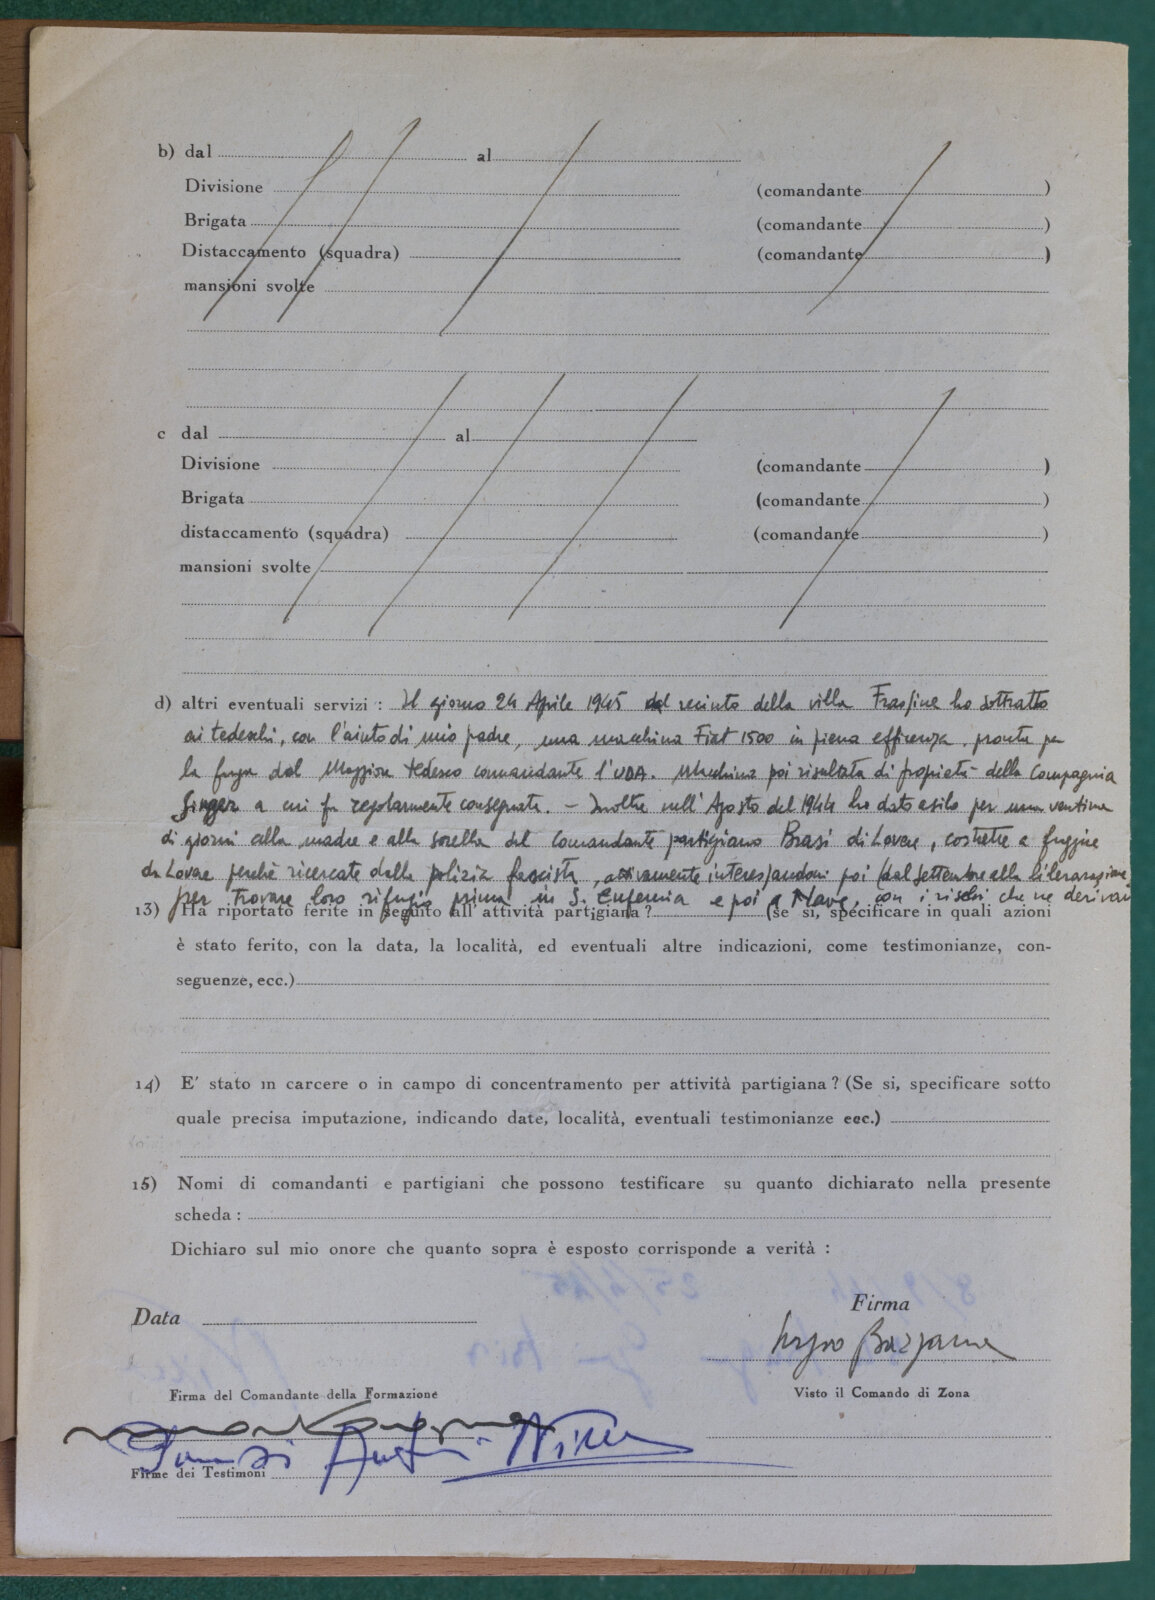 b) dal al
Divisione (comandante )
Brigata (comandante )
Distaccamento (squadra) (comandante )
mansioni svolte
c dal al
Divisione (comandante )
Brigata (comandante )
distaccamento (squadra) (comandante )
mansioni svolte
d) altri eventuali servizi : Il giorno 24 Aprile 1945 dal recinto della villa ho sottratto
ai tedeschi, con l'aiuto di mio padre, una macchina Fiat 1500 in piena efficenza, pronta per
la fuga del Maggiore tedesco comandante l'UDA. Macchina poi risultata di proprietà della Compagnia
Singer a cui fu regolarmente consegnata. – Inoltre nell'Agosto del 1944 ho dato asilo per una ventina
di giorni alla madre e alla sorella del Comandante partigiano Brasi di Lovere, costrette a fuggire
da Lovere perchè ricercate dalla polizia fascista, attivamente interessandomi poi (dal settembre alla liberazione)
per trovare loro rifugio prima in S. Eufemia e poi a Nave, con i rischi che ne derivavano
13) Ha riportato ferite in seguito all'attività partigiana ? (se si, specificare in quali azioni
è stato ferito, con la data, la località, ed eventuali altre indicazioni, come testimonianze, con-
seguenze, ecc.)
14) E' stato in carcere o in campo di concentramento per attività partigiana ? (Se si, specificare sotto
quale precisa imputazione, indicando date, località, eventuali testimonianze eec.)
15) Nomi di comandanti e partigiani che possono testificare su quanto dichiarato nella presente
scheda :
Dichiaro sul mio onore che quanto sopra è esposto corrisponde a verità :
Data
Firma
Firma del Comandante della Formazione
Visto il Comando di Zona
Firme dei Testimoni